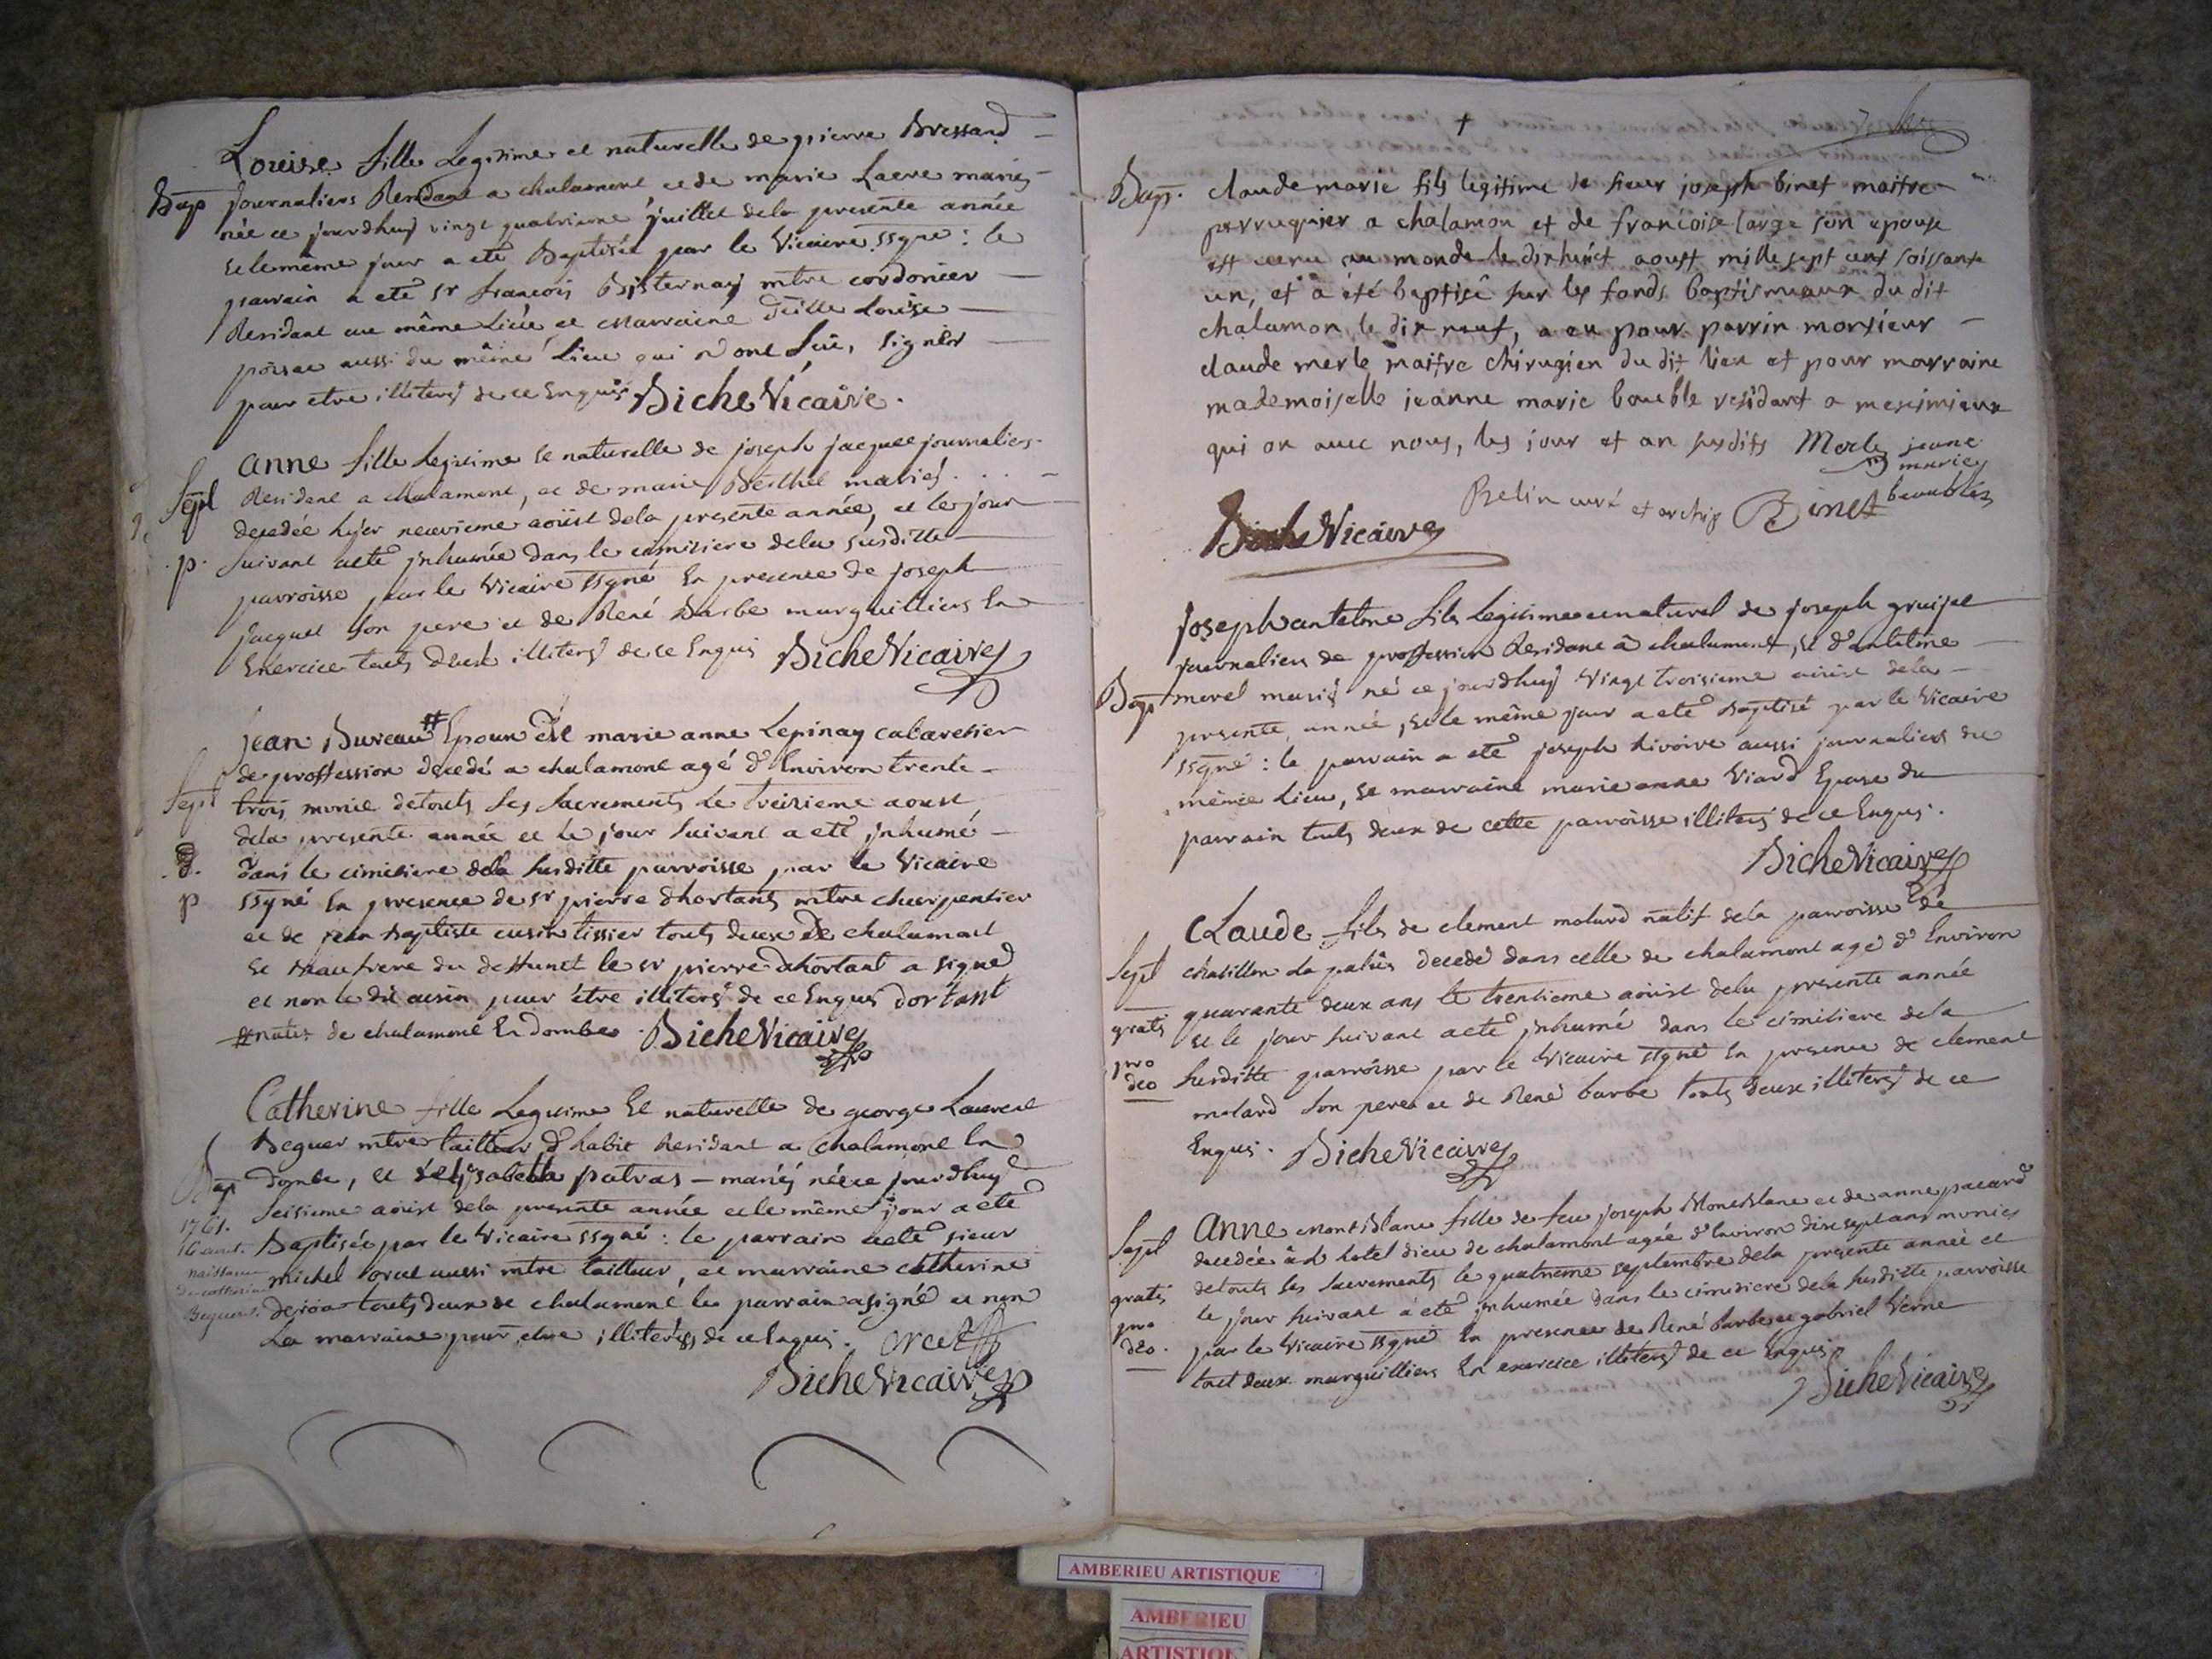 Louise fille Legitime et naturelle de pierre Bressand
Bap journaliers Residant a chalamont et de marie Laere mariés
née ce jourdhuy vingt quatrieme juillet dela presente année
et le même jour a eté Baptisée par le Vicaire ssgné : le
parrain a eté sr francois mtre cordonier
Residant au même Lieu et marraine Dlle Louise
aussi du même Lieu qui n'ont sçu signer
pour etre illiterés de ce Enquis Biche Vicaire.
anne fille Legitime et naturelle de joseph jacquet journaliers
Sepl Residant a chalamont, et de marie Berthet mariés
decedée hyer neuvieme aoüst dela presente année, et le jour
p. suivant a eté jnhumée dans le cimitiere dela susditte
parroisse par le Vicaire ssgné En presence de joseph
jacquet son pere et de René Barbe marguilliers En
Exercice touts deux illiterés de ce Enquis Biche Vicaire
jean Bureau # Epoux de marie anne Lepinay cabaretier
de proffession decedé a chalamont agé d'Environ trente
Sepl trois munie de touts ses sacrements le treizieme aoust
dela presente année et le jour suivant a eté jnhumé
dans le cimitiere dela susditte parroisse par le Vicaire
p ssgné En presence de sr pierre dhortant mtre charpentier
et de jean Baptiste cusin tissier touts deux de chalamont
et Beaufrere du deffunct le sr pierre dhortant a signé
et non le dit cusin pour être illiteré de ce Enquis dortant
# natif de chalamont En dombes. Biche Vicaire
Catherine fille Legitime Et naturelle de george Laurent
Beguer mtre tailleur d'habit Residant a chalamont En
Bap dombe, et d'elisabeth patras – mariés née ce jourdhuy
1761. seizieme aoüst dela presente année et le même jour a eté
16 aout. Baptisée par le Vicaire ssgné : le parrain a eté sieur
naissance michel orcet aussi mtre tailleur, et marraine catherine
de catherine
Beguer. touts deux de chalamont le parrain a signé et non
La marraine pour etre illiterés de ce Enquis. orcet
Biche Vicaire
+
Bap. claude marie fils legitime de sieur joseph binet maitre
perruquier a chalamon et de francoise large son epouse
est venu au monde le dixhuict aoust mille sept cent soissante
un, et a été baptisé sur les fonds baptismaux du dit
chalamon le dix neuf, a eu pour parrin monsieur
claude merle maitre chirugien du dit lieu et pour marraine
mademoiselle jeanne marie bouble residant a meximieux
qui on avec nous, les jour et an susdits Merle jeane
marie
Belin curé et archip Binet
Biche Vicaire
Joseph antelme fils Legitime et naturel de joseph
journaliers de proffession Residant a chalamont, et d'antelme
Bap morel mariés né ce jourdhuy vingt troisieme aoüst dela
presente année, et le même jour a eté Baptisé par le Vicaire
ssgné : le parrain a eté joseph Rivoire aussi journaliers du
même Lieu, et marraine marie anne Viard Epouse du
parrain touts deux de cette parroisse illiterés de ce Enquis.
Biche Vicaire
CLaude fils de clement molard natif dela parroisse de
Sepl chatillon la palüs decedé dans celle de chalamont agé d'Environ
gratis quarante deux ans le trentieme aoüst dela presente année
et le jour suivant a eté jnhumé dans le cimitiere dela
pro
deo susditte parroisse par le Vicaire ssgné En presence de clement
molard son pere et de René barbe touts deux illiterés de ce
Enquis. Biche Vicaire
Sepl Anne Montblanc fille de feu joseph Montblanc et de anne pacard
decedée à L'hotel dieu de chalamont agée d'Environ dix sept ans munies
gratis de touts ses sacrements le quatrieme septembre dela presente année et
pro le jour suivant a eté jnhumée dans le cimitiere dela susditte parroisse
deo. par le Vicaire ssgné En presence de René barbe et gabriel Verne
tout deux marguilliers En exercice illiterés de ce Enquis
Biche Vicaire
AMBERIEU ARTISTIQUE
AMBERIEU